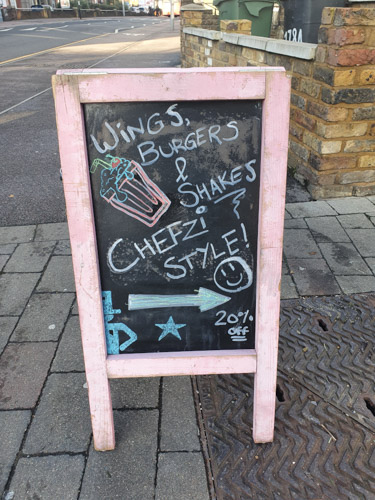 WINGS,
BURGERS
&
SHAKES
CHEFZI
STYLE!
20%
OFF